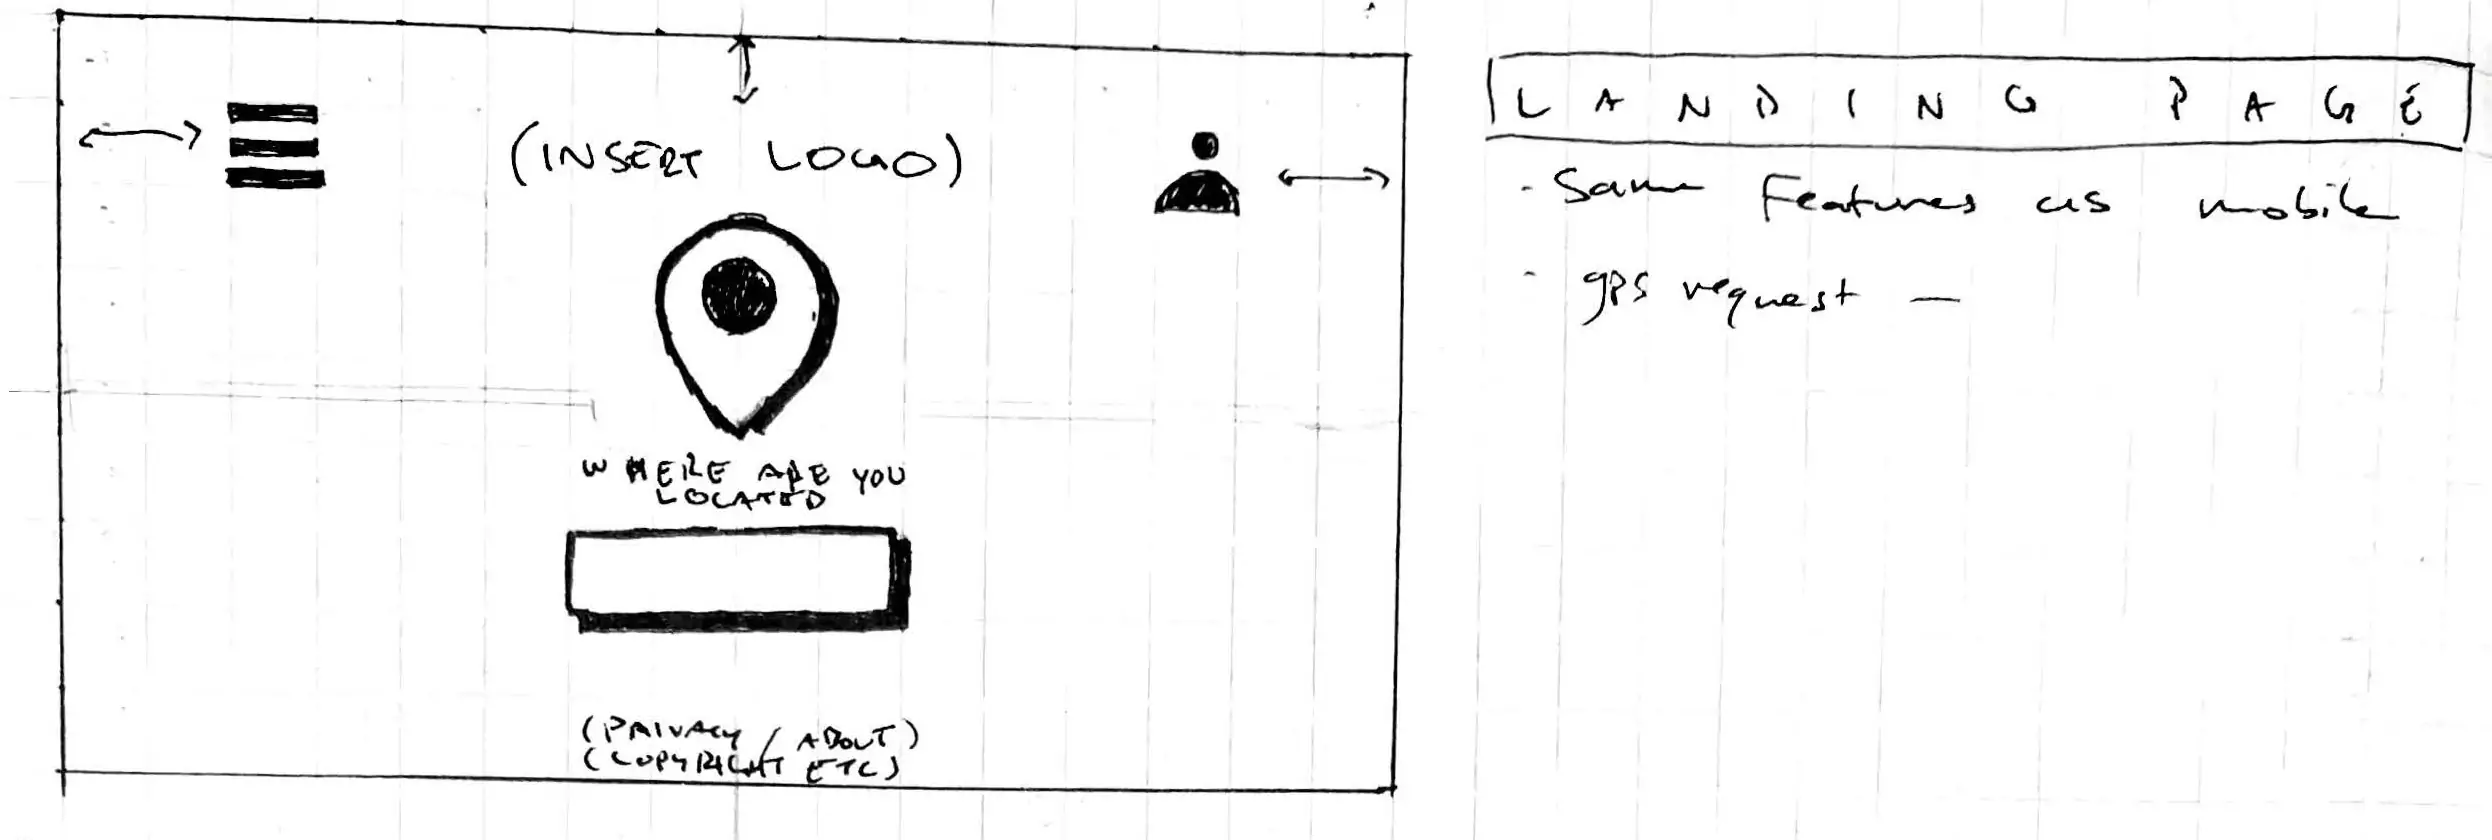 (INSERT LOGO)
WHERE ARE YOU
LOCATED
(PRIVACY / ABOUT)
(COPYRIGHT ETC)
LANDING PAGE
- Same Features as mobile
- gps request —